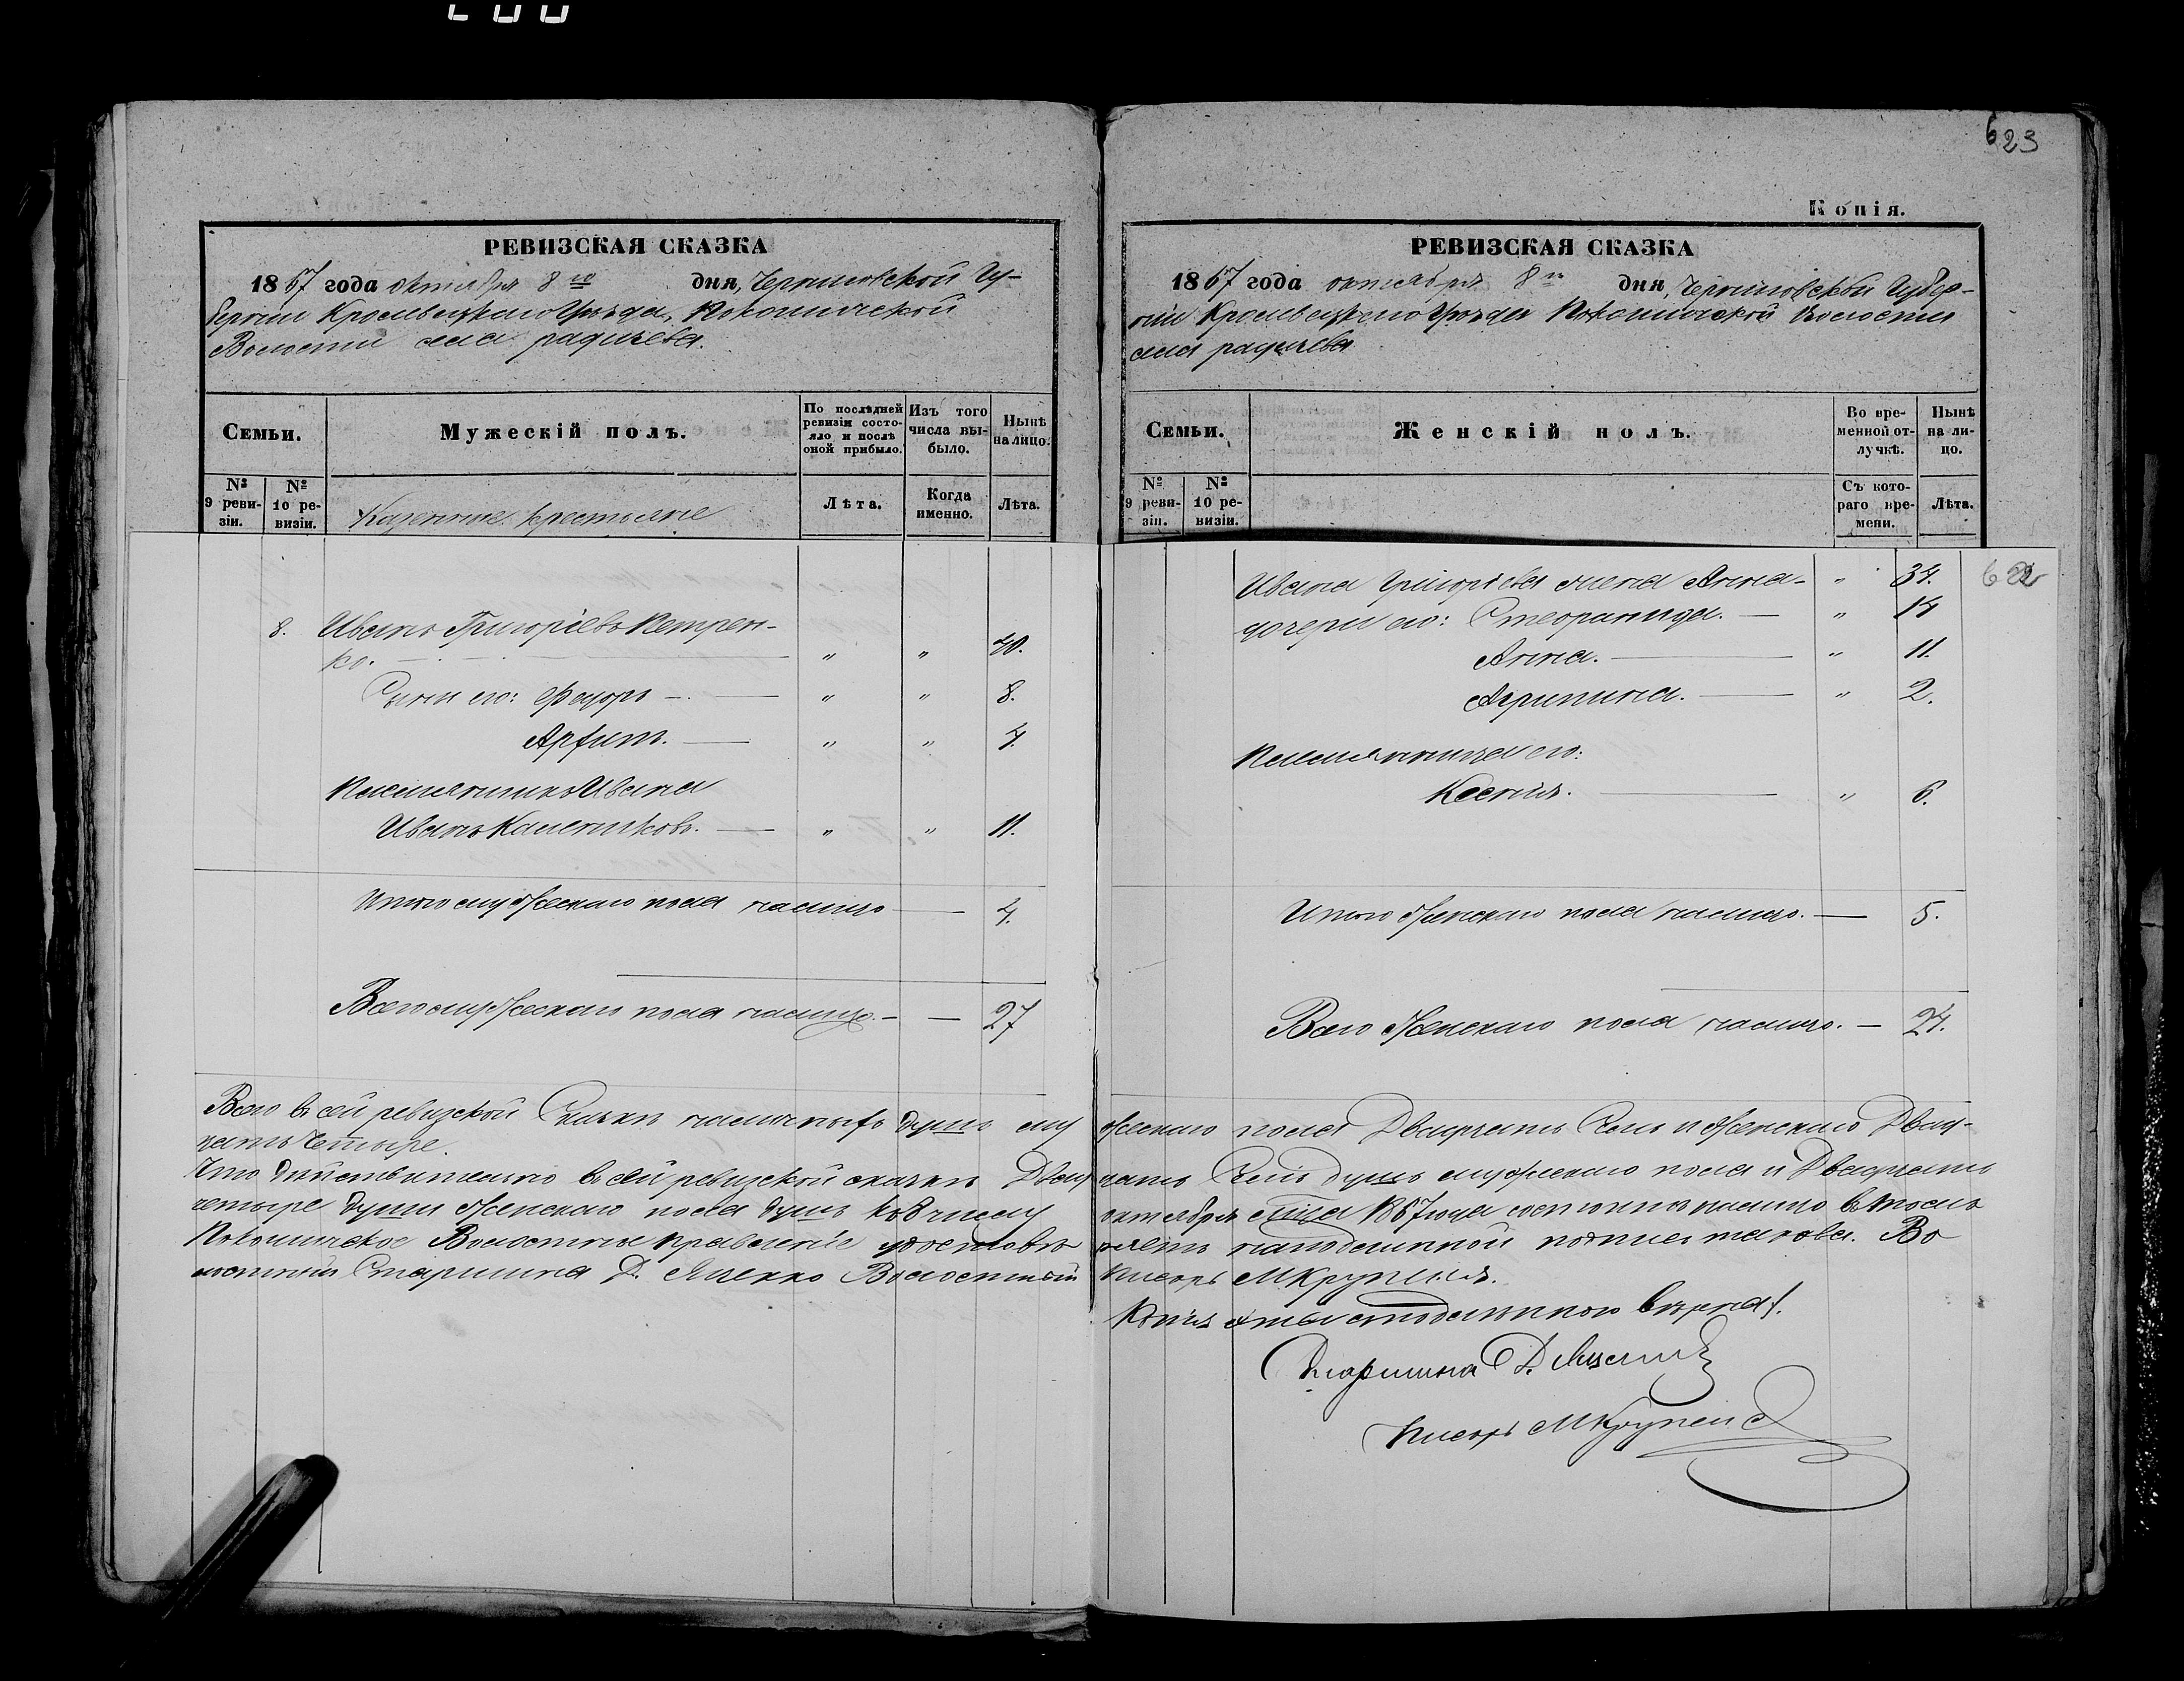 623
Копія.
РЕВИЗСКАЯ СКАЗКА
1867 года октября 8го дня, Черниговской Гу-
берніи Кролевецкаго Уѣзда, Покошичской
Волости села Радичева.
Семьи.
Мужескій полъ.
По послѣдней ревизіи состо-
яло и послѣ оной прибыло.
Изъ того числа вы-
было.
Нынѣ
на лицо.
№ 9 реви-
зіи.
№ 10 ре-
визіи.
Казенные крестьяне
Лѣта.
Когда именно.
Лѣта.
8. Иванъ Григорьевъ Петрен-
ко. — " " 40.
Сыны его: Федоръ — " " 8.
Арфимъ. — " " 4.
Племянникъ Ивана
Иванъ Калениковъ. — " " 11.
Итого мужескаго пола налицо — 4.
Всего мужескаго пола налицо. — 27
РЕВИЗСКАЯ СКАЗКА
1867 года октября 8го дня, Черниговской Губер-
ніи Кролевецкаго Уѣзда Покошичской Волости
села Радичева
Семьи.
Женскій полъ.
Во вре-
менной от-
лучкѣ.
Нынѣ
на ли-
цо.
№ 9 реви-
зіи.
№ 10 ре-
визіи.
Съ кото-
раго вре-
мени.
Лѣта.
622
Ивана Григорьева жена Анна — " 34.
дочери его: Стефанида. — " 14
Анна. — " 11.
Агрипина. — " 2.
Племянница его:
Ксенія. — " 6.
Итого женскаго пола налицо. — 5.
Всего женскаго пола налицо. — 24.
Всего въ сей ревизской Сказкѣ наличныхъ душъ му жескаго пола Двадцать Семь и женскаго Двад-
цать Четыре.
Что дѣйствительно въ сей ревизской сказкѣ Двад цать Семь душъ мужескаго пола и Двадцать
четыре души женскаго пола душъ къ 8 числу октября м-ца 1867 года состоитъ налицо въ томъ
Покошичское Волостное Правленіе удостовѣ ряетъ на подлинной подписа такова. Во
лостный Старшина Д. Яценко Волостный Писарь М Крупеня.
Копія съ подлиннымъ вѣрна.
Старшина Д. Яценко
Писарь М Крупеня